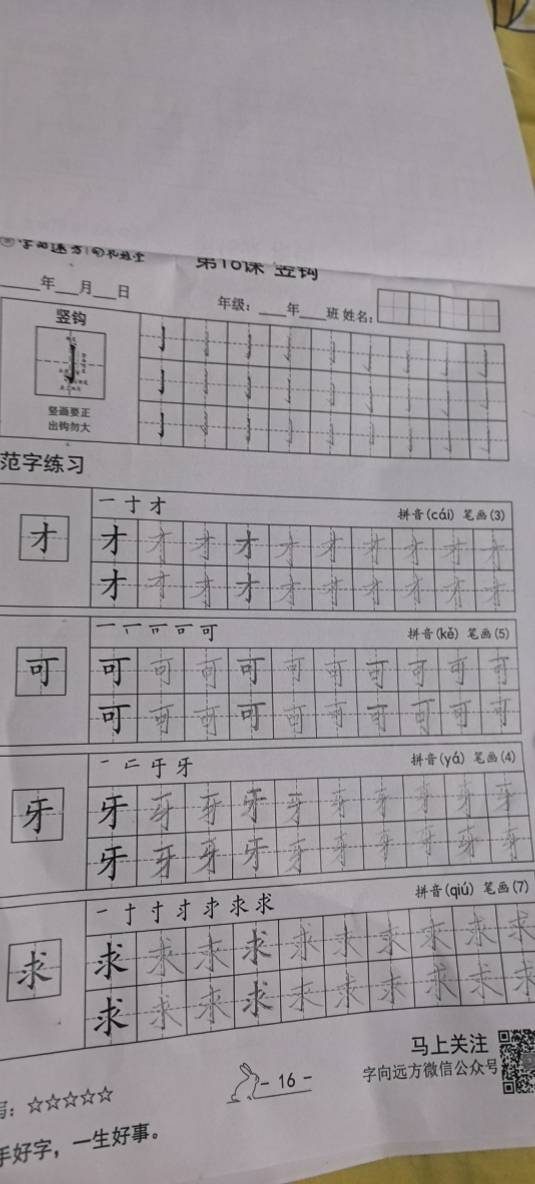 第16课 竖钩
年 月 日 年级： 年 班 姓名：
竖钩
竖画要正
出钩勿大
范字练习
一 十 才 拼音(cái) 笔画(3)
才 才 才 才 才 才 才 才 才 才 才
才 才 才 才 才 才 才 才 才 才
拼音(kě) 笔画(5)
可 可 可 可 可 可 可 可 可 可 可
可 可 可 可 可 可 可 可 可 可
拼音(yá) 笔画(4)
牙 牙 牙 牙 牙 牙 牙 牙 牙 牙 牙
牙 牙 牙 牙 牙 牙 牙 牙 牙 牙
拼音(qiú) 笔画(7)
求 求 求 求 求 求 求 求 求 求 求
求 求 求 求 求 求 求 求 求 求
马上关注
字向远方微信公众号
- 16 -
写：☆☆☆☆☆
手好字，一生好事。